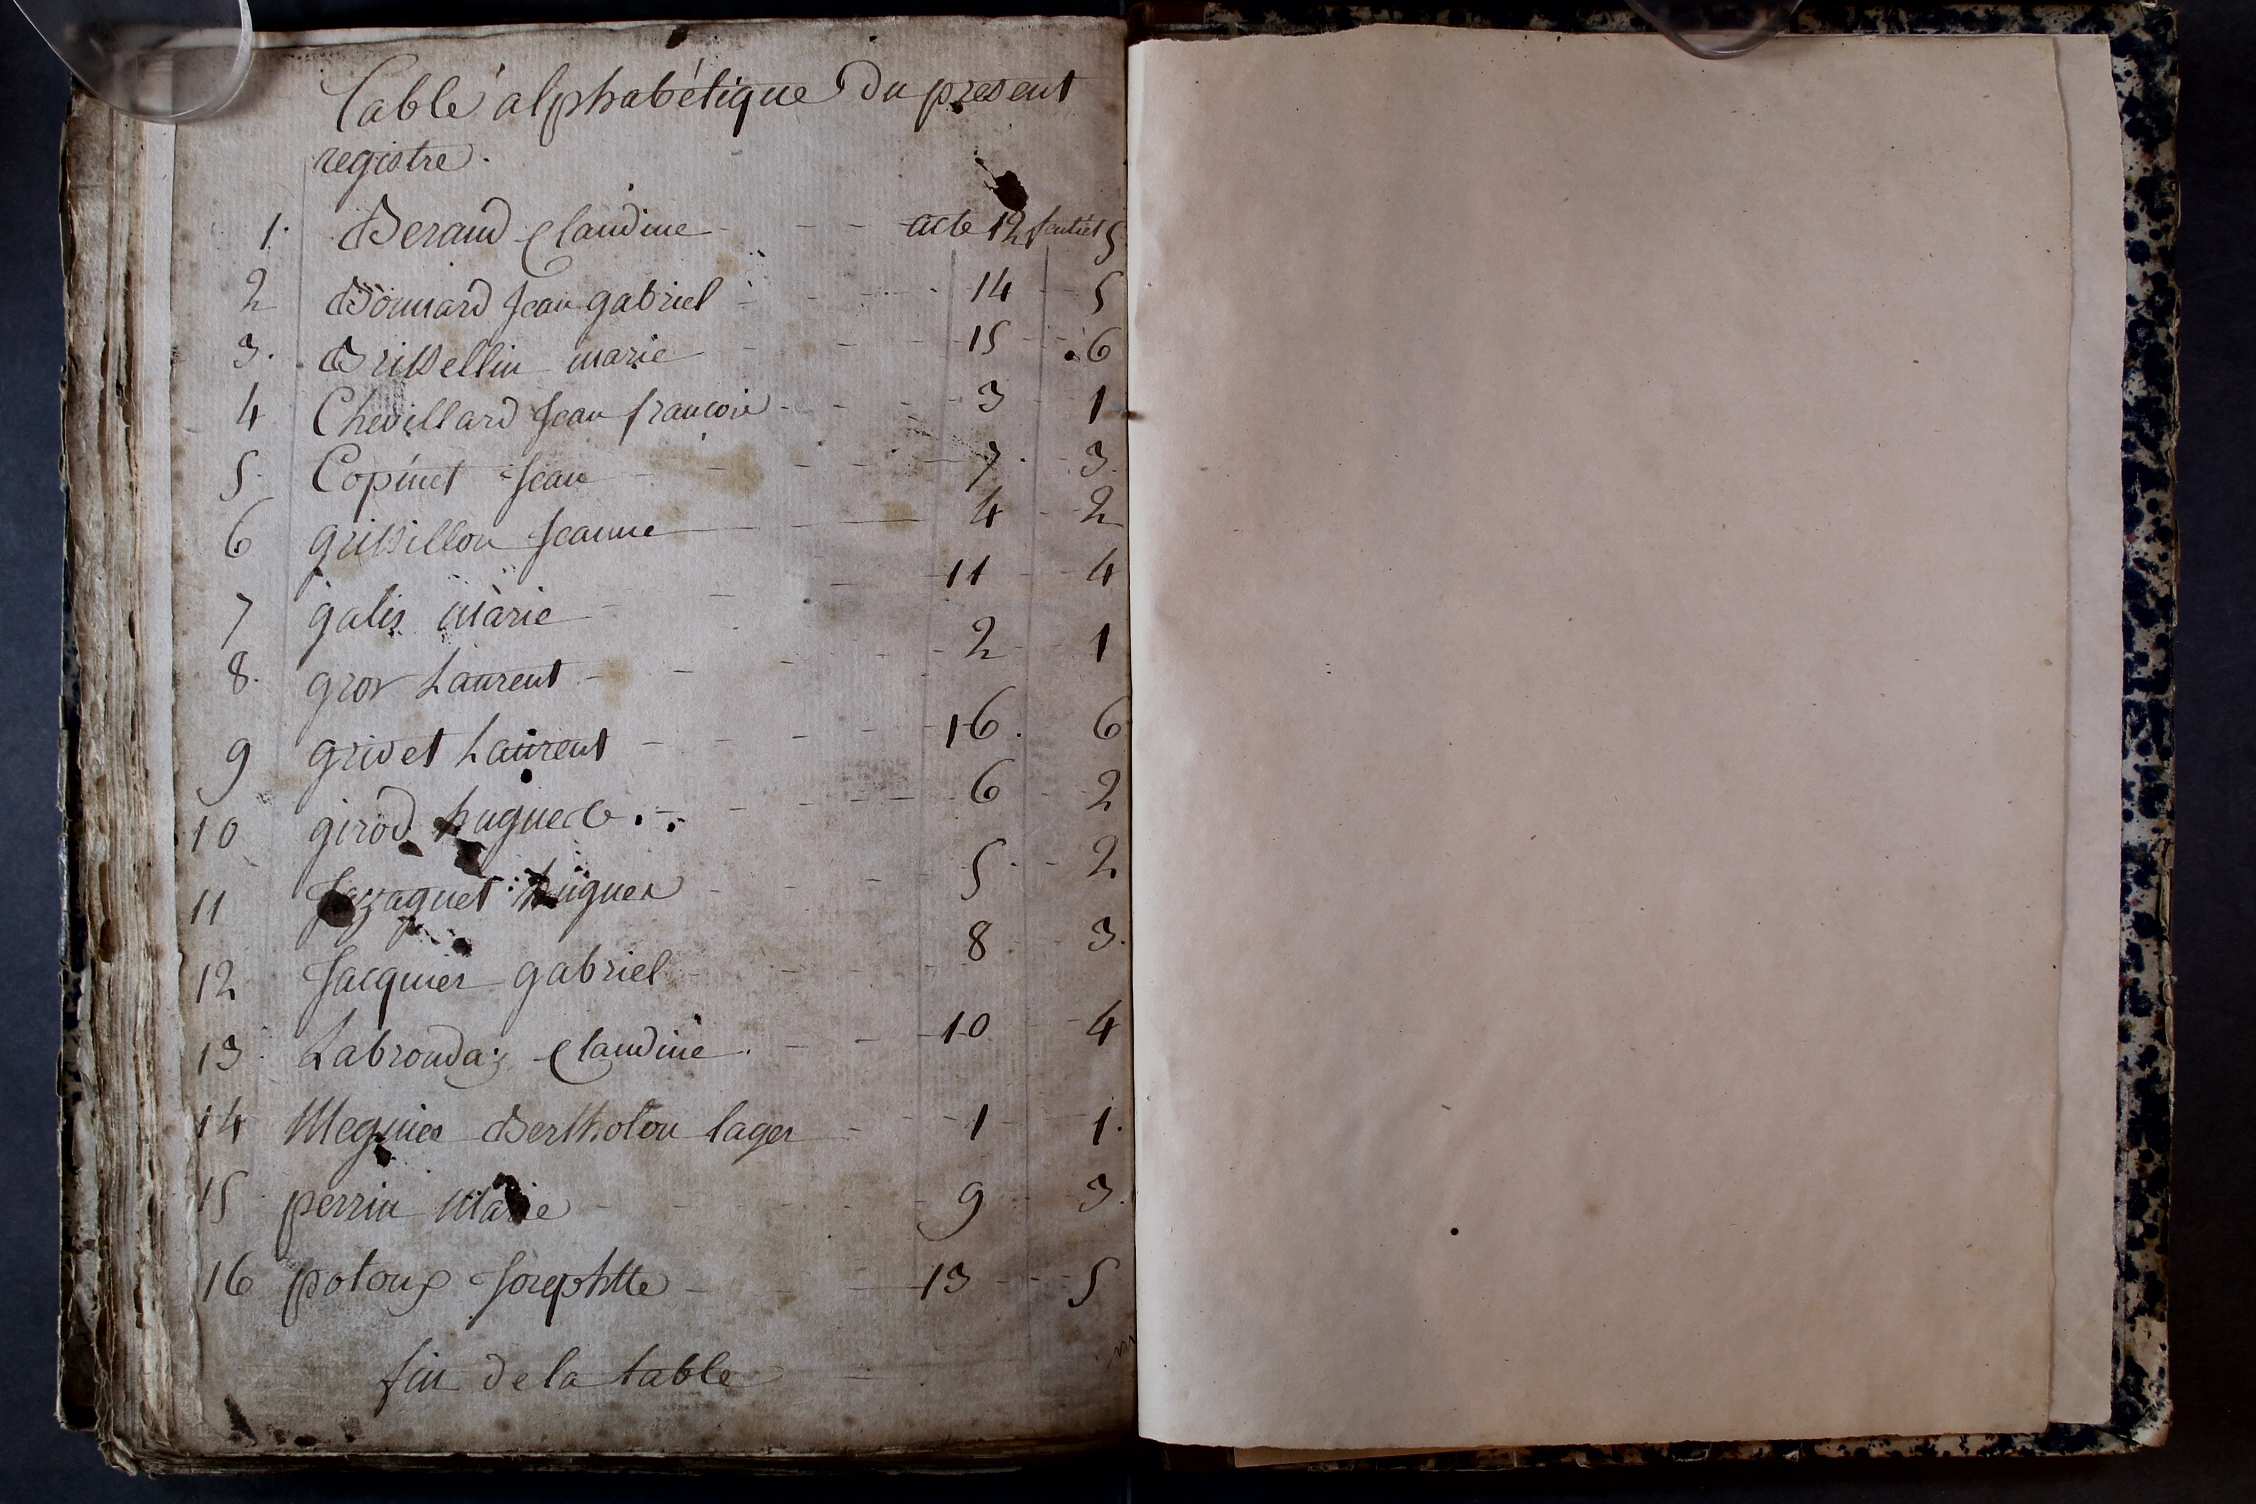 Table alphabétique Du present
registre.
1. Beraud Claudine acte 12 feuliet 5
2 Bonnard Jean gabriel 14 5
3. Brissellin marie 15 6
4 Chevillard Jean francois 3 1
5. Copinet Jean 7 3
6 grissillon Jeanne 4 2
7 galis marie 11 4
8. gros Laurent 2 1
9 grivet Laurent 16 6
10 girod hugue 6 2
11 hugues 5 2
12 Jacquier gabriel 8 3
13 Claudine 10 4
14 Bertholon 1 1
15 perrin Marie 9 3
16 potoux Josephtte 13 5
fin de la table